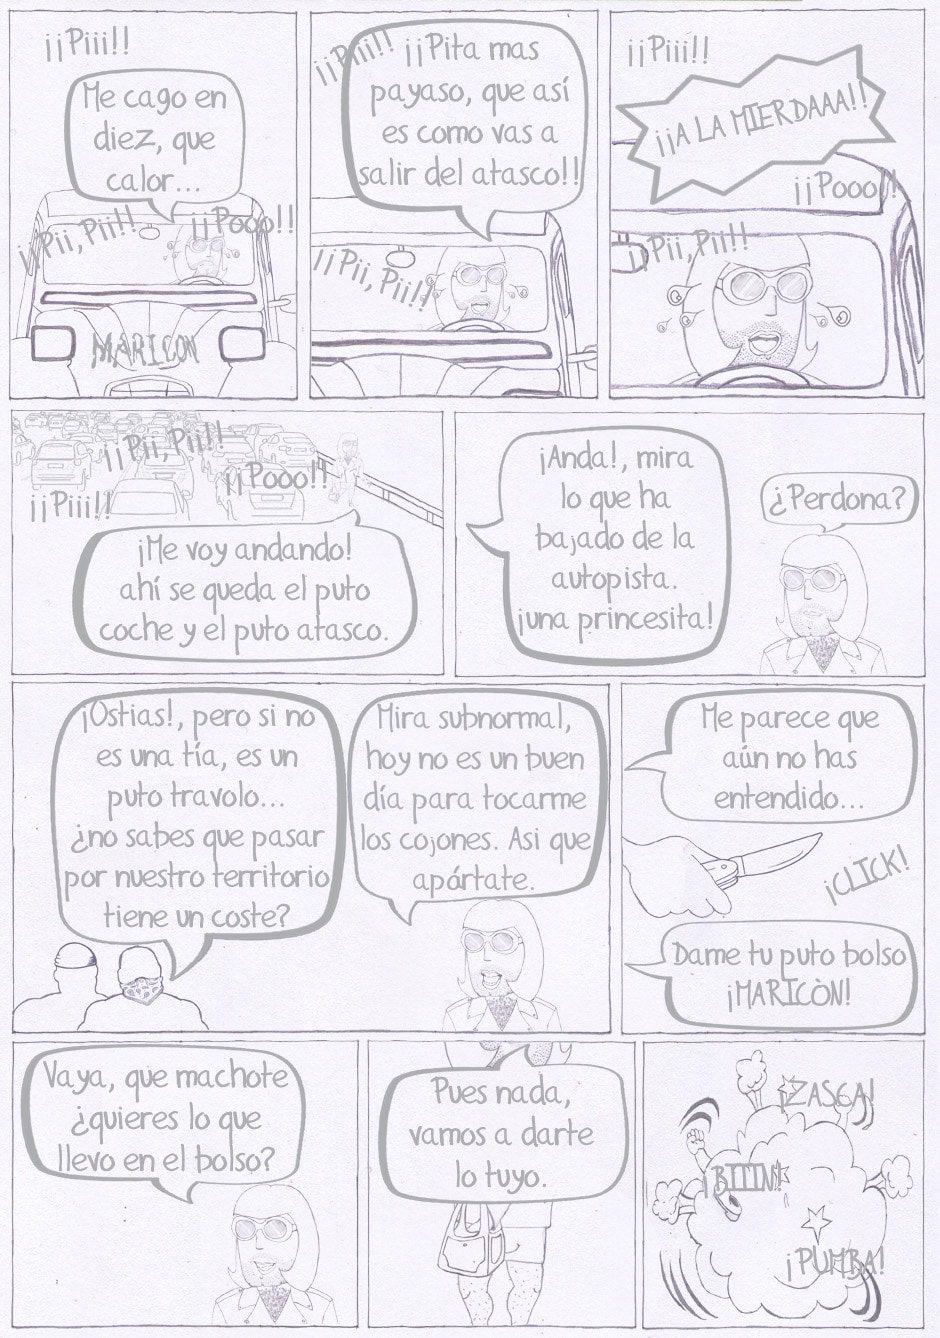 ¡¡Piii!!
Me cago en
diez, que
calor...
¡¡Pii, Pii!!
¡¡Pooo!!
MARICON
¡¡Piii!!
¡¡Pita mas
payaso, que así
es como vas a
salir del atasco!!
¡¡Pii, Pii!!
¡¡Piii!!
¡¡A LA MIERDAAA!!
¡¡Pooo!!
¡¡Pii, Pii!!
¡¡Pii, Pii!!
¡¡Pooo!!
¡¡Piii!!
¡Me voy andando!
ahí se queda el puto
coche y el puto atasco.
¡Anda!, mira
lo que ha
bajado de la
autopista.
¡una princesita!
¿Perdona?
¡Ostias!, pero si no
es una tía, es un
puto travolo...
¿no sabes que pasar
por nuestro territorio
tiene un coste?
Mira subnormal,
hoy no es un buen
día para tocarme
los cojones. Asi que
apártate.
Me parece que
aún no has
entendido...
¡CLICK!
Dame tu puto bolso
¡MARICÒN!
Vaya, que machote
¿quieres lo que
llevo en el bolso?
Pues nada,
vamos a darte
lo tuyo.
¡ZASCA!
¡BIIIN!
¡PUMBA!